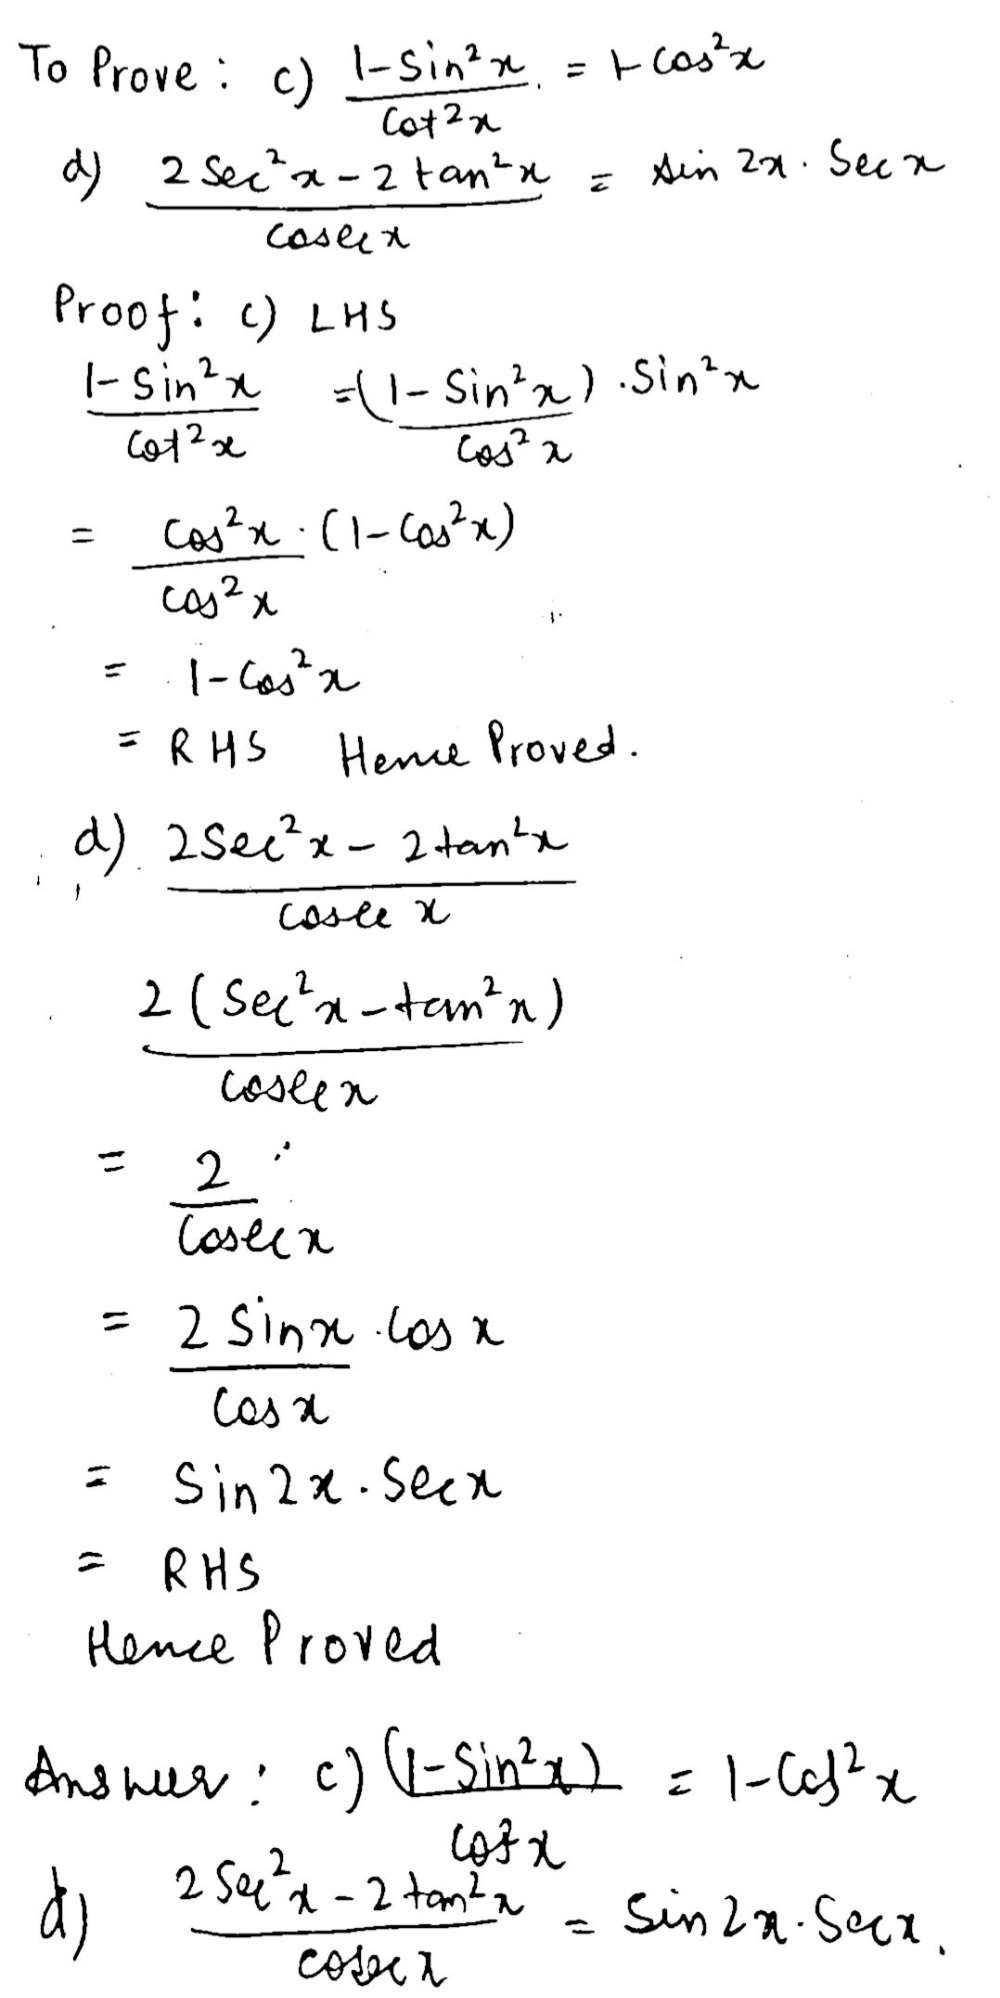 To Prove : c) 1-Sin²x / Cot²x = 1-Cos²x
d) 2 Sec²x - 2 tan²x / cosec x = sin 2x . Sec x
Proof : c) LHS
1-Sin²x / Cot²x = (1-Sin²x) . Sin²x / Cos²x
= Cos²x . (1-Cos²x) / cos²x
= 1-Cos²x
= RHS Hence Proved.
d) 2Sec²x - 2tan²x / cosec x
2 (Sec²x - tan²x) / cosec x
= 2 / Cosec x
= 2 Sinx . Cos x / Cos x
= Sin 2x . Sec x
= RHS
Hence Proved
Answer : c) (1-Sin²x) / cot²x = 1-Cos²x
d) 2 Sec²x - 2 tan²x / cosec x = Sin 2x . Sec x.